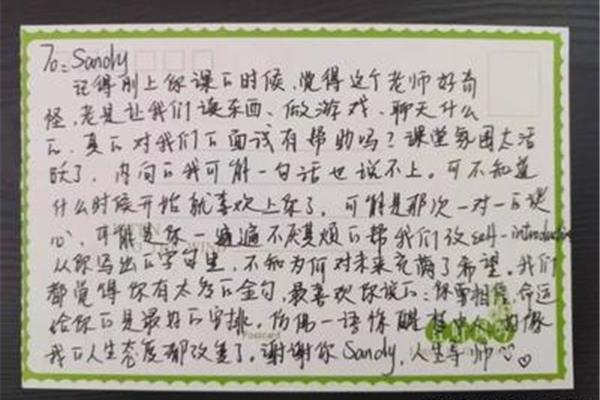 To: Sandy
记得刚上你课的时候，觉得这个老师好奇
怪，老是让我们读东西、做游戏、聊天什么
的，真的对我们的面试有帮助吗？课堂氛围太活
跃了，内向的我可能一句话也说不上。可不知道
什么时候开始就喜欢上你了，可能是那次一对一的谈
心，可能是你一遍遍不厌其烦的帮我们改self-introduction
从你写出的字句里，不知为何对未来充满了希望。我们
都觉得你有太多的金句，最喜欢你说的：你要相信，命运
给你的是最好的安排。仿佛一语惊醒梦中人，好像
我的人生态度都改变了。谢谢你Sandy，人生导师♡♡
Postcard